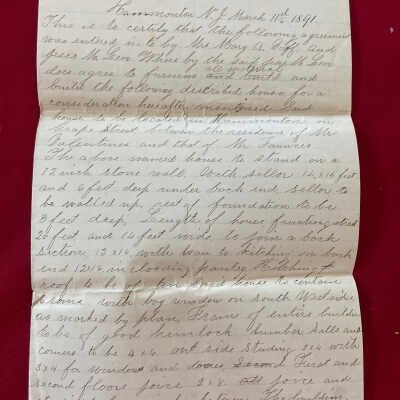 Hammonton N.J. March 11th 1891.
This is to certify that the following agreement
was entered in to by Mrs Mary A. and
J Leon White by the said J M Leon
does agree to furnish all material and
build the following described house for a
consideration hereafter mentioned Said
house to be located in Hammonton on
Grape Street between the residence of Mr
Valentines and that of Mr
The above named house to stand on a
12 inch stone wall. With sellor 12 x 16 feet
and 6 feet deep under back end sellor to
be walled up, rest of foundation to be
3 feet deep, Length of house fronting street
20 feet and 14 feet wide to join a back
section 12 x 16 with to kitching on back
end 12 x 8 inclooding pantry Kitching
roof to be of house to contain
rooms with bay window on South West side
as marked by plan, Frame of entire builden
to be of good hemlock lumber sills and
corners to be 4 x 6. out side studing 3 x 4 with
3 x 4 for windows and doors, First and
second floors joice 2 x 8 joice and